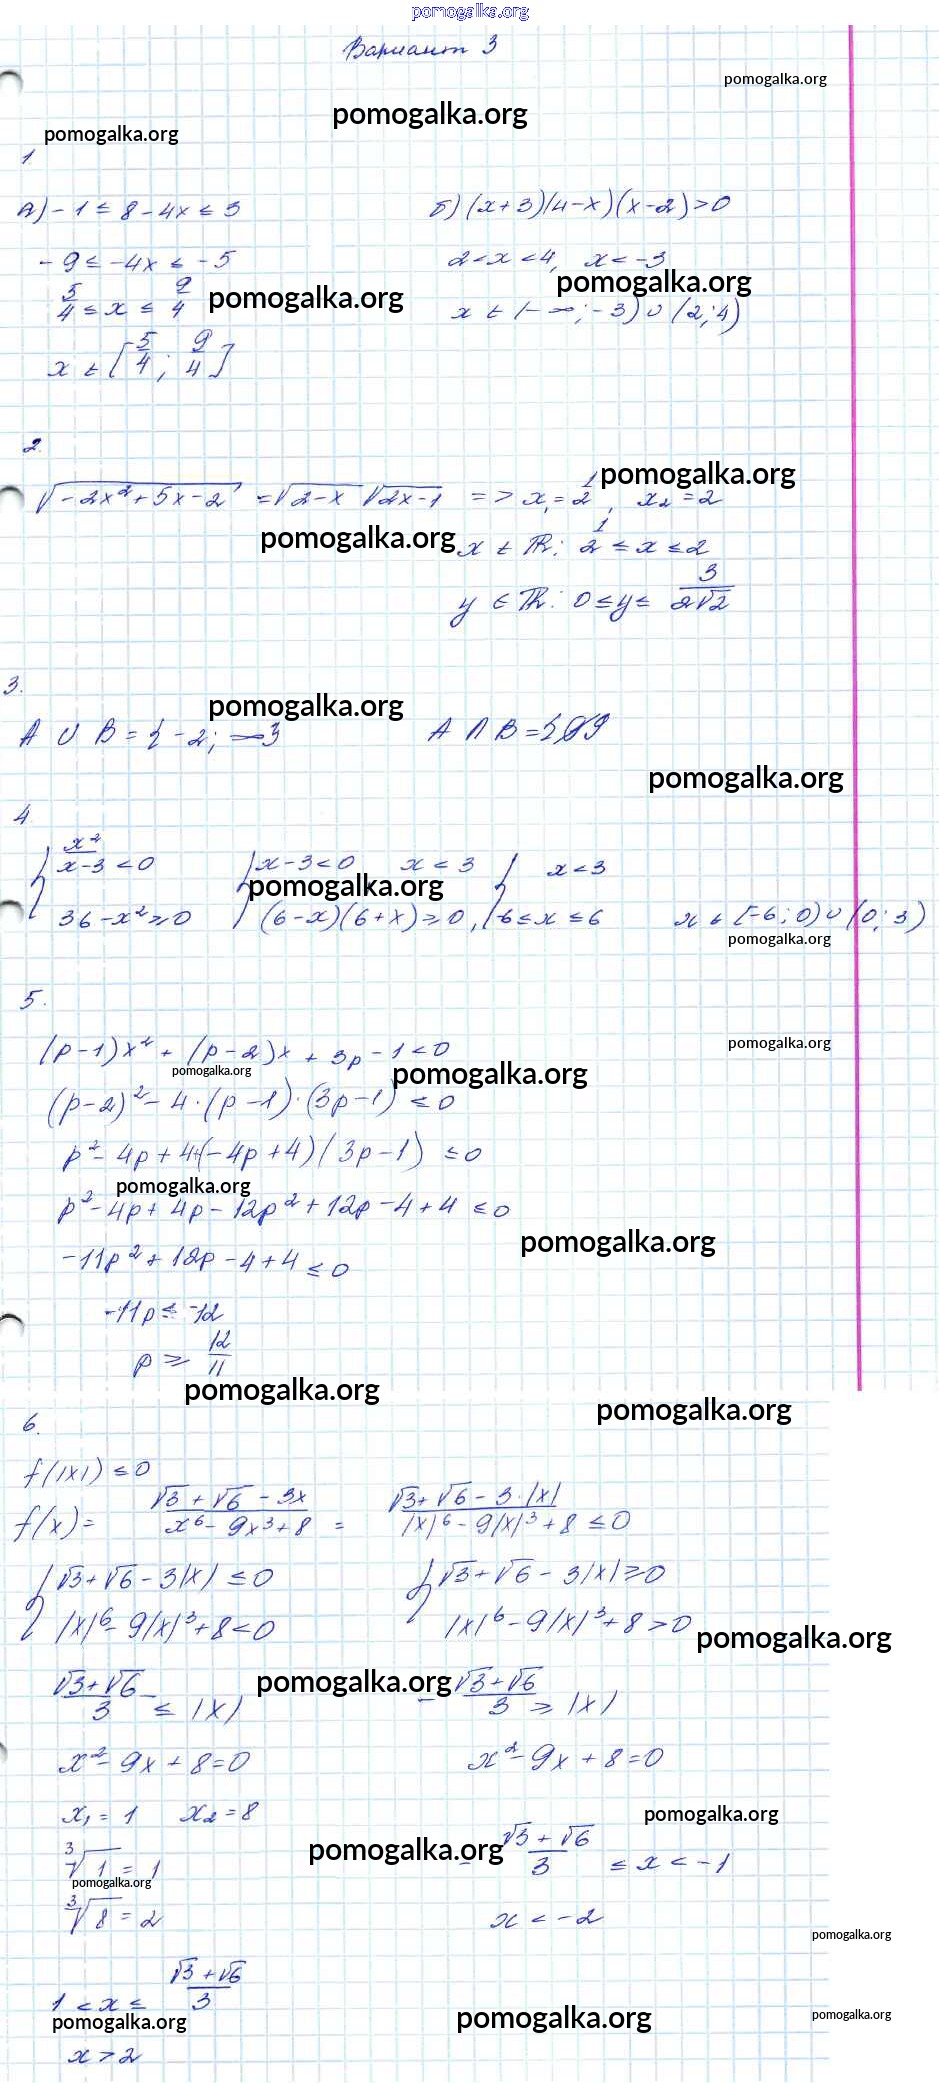 pomogalka.org
Вариант 3
pomogalka.org
pomogalka.org
pomogalka.org
1
а) -1 ≤ 8 - 4x ≤ 3
б) (x+3)(4-x)(x-2) > 0
-9 ≤ -4x ≤ -5
2 < x < 4, x < -3
pomogalka.org
pomogalka.org
5/4 ≤ x ≤ 9/4
x ∈ (-∞; -3) ∪ (2; 4)
x ∈ [5/4; 9/4]
2.
pomogalka.org
√(-2x²+5x-2) = √(2-x) √(2x-1) => x₁ = 1/2, x₂ = 2
pomogalka.org
x ∈ R: 1/2 ≤ x ≤ 2
y ∈ R: 0 ≤ y ≤ 3/(2√2)
3.
pomogalka.org
A ∪ B = {-2;
A ∩ B = {
pomogalka.org
4
{ x²/(x-3) < 0 { x-3 < 0 x < 3 { x < 3
pomogalka.org
36 - x² ≥ 0 (6-x)(6+x) ≥ 0, -6 ≤ x ≤ 6 x ∈ [-6; 0) ∪ (0; 3)
pomogalka.org
5.
(p-1)x² + (p-2)x + 3p - 1 < 0
pomogalka.org
pomogalka.org
pomogalka.org
(p-2)² - 4·(p-1)·(3p-1) ≤ 0
p² - 4p + 4 + (-4p+4)(3p-1) ≤ 0
pomogalka.org
p² - 4p + 4p - 12p² + 12p - 4 + 4 ≤ 0
pomogalka.org
-11p² + 12p - 4 + 4 ≤ 0
-11p ≤ -12
p ≥ 12/11
pomogalka.org
pomogalka.org
6.
f(|x|) ≤ 0
f(x) = (√3 + √6 - 3x)/(x⁶ - 9x³ + 8) = (√3 + √6 - 3·|x|)/(|x|⁶ - 9|x|³ + 8) ≤ 0
{ √3 + √6 - 3|x| ≤ 0 { √3 + √6 - 3|x| ≥ 0
|x|⁶ - 9|x|³ + 8 < 0 |x|⁶ - 9|x|³ + 8 > 0
pomogalka.org
pomogalka.org
(√3+√6)/3 ≤ |x| - (√3+√6)/3 ≥ |x|
x² - 9x + 8 = 0 x² - 9x + 8 = 0
x₁ = 1 x₂ = 8
pomogalka.org
pomogalka.org
³√1 = 1
- (√3+√6)/3 ≤ x < -1
pomogalka.org
³√8 = 2
x < -2
pomogalka.org
1 < x ≤ (√3+√6)/3
pomogalka.org
pomogalka.org
pomogalka.org
x > 2